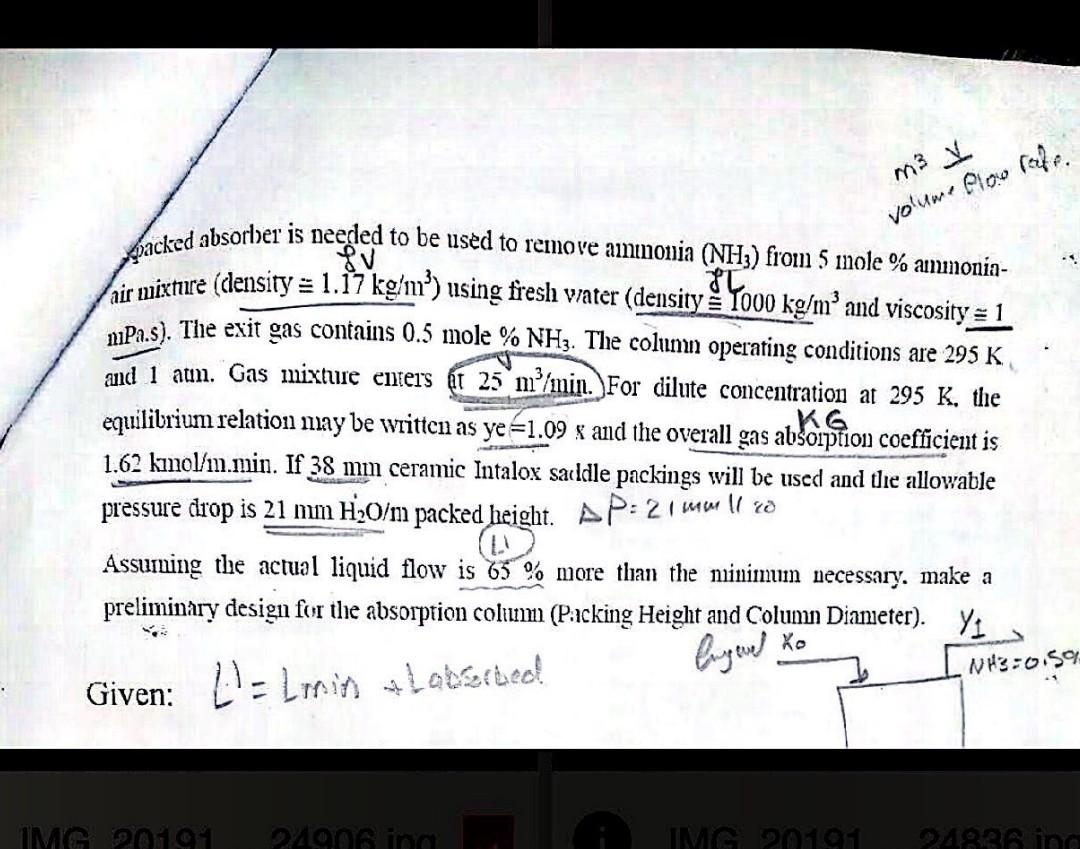 m3 V
volume flow rate.
packed absorber is needed to be used to remove ammonia (NH₃) from 5 mole % ammonia-
air mixture (density ≅ 1.17 kg/m³) using fresh water (density ≅ 1000 kg/m³ and viscosity ≅ 1
mPa.s). The exit gas contains 0.5 mole % NH₃. The column operating conditions are 295 K
and 1 atm. Gas mixture enters at 25 m³/min. For dilute concentration at 295 K, the
KG
equilibrium relation may be written as ye=1.09 x and the overall gas absorption coefficient is
1.62 kmol/m.min. If 38 mm ceramic Intalox saddle packings will be used and the allowable
pressure drop is 21 mm H₂O/m packed height. ΔP= 21 mm H20
L1
Assuming the actual liquid flow is 65 % more than the minimum necessary. make a
preliminary design for the absorption column (Packing Height and Column Diameter). Y1
Xo
NH3=0.5%
Given: L1 = Lmin + Labsorbed
IMG_20191 24906.jpg IMG_20191 24836.jpg